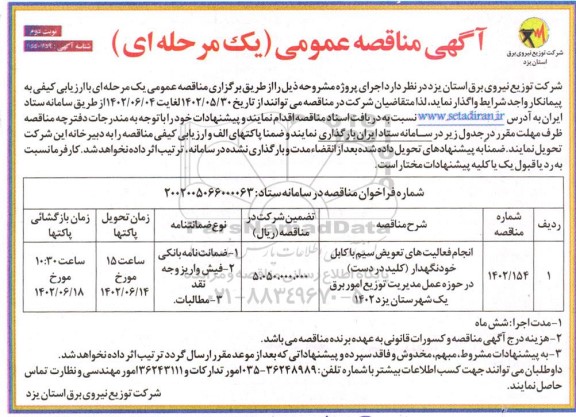 نوبت دوم
شناسه آگهی:
آگهی مناقصه عمومی (یک مرحله ای)
شرکت توزیع نیروی برق
استان یزد
شرکت توزیع نیروی برق استان یزد در نظر دارد اجرای پروژه مشروحه ذیل را از طریق برگزاری مناقصه عمومی یک مرحله ای با ارزیابی کیفی به
پیمانکار واجد شرایط واگذار نماید، لذا متقاضیان شرکت در مناقصه می توانند از تاریخ ۱۴۰۲/۰۵/۳۰ لغایت ۱۴۰۲/۰۶/۰۴ از طریق سامانه ستاد
ایران به آدرس www.setadiran.ir نسبت به دریافت اسناد مناقصه اقدام نمایند و پیشنهادات خود را با توجه به مندرجات دفترچه مناقصه
ظرف مهلت مقرر در جدول زیر در سامانه ستاد ایران بارگذاری نمایند و ضمنا پاکتهای الف و ارزیابی کیفی مناقصه را به دبیرخانه این شرکت
تحویل نمایند. ضمنا به پیشنهادهای تحویل داده شده بعد از انقضاء مدت و بارگذاری نشده در سامانه، ترتیب اثر داده نخواهد شد. کارفرما نسبت
به رد یا قبول یک یا کلیه پیشنهادات مختار است.
شماره فراخوان مناقصه در سامانه ستاد: ۲۰۰۲۰۰۵۰۶۶۰۰۰۰۶۳
ردیف
شماره مناقصه
شرح مناقصه
تضمین شرکت در مناقصه (ریال)
نوع ضمانتنامه
زمان تحویل پاکتها
زمان بازگشائی پاکتها
۱
۱۴۰۲/۱۵۴
انجام فعالیت های تعویض سیم با کابل
خودنگهدار (کلید در دست)
در حوزه عمل مدیریت توزیع امور برق
یک شهرستان یزد ۱۴۰۲
۵.۰۵۰.۰۰۰.۰۰۰
۱-ضمانت نامه بانکی
۲-فیش واریز وجه
نقد
۳-مطالبات.
ساعت ۱۵
مورخ
۱۴۰۲/۰۶/۱۴
ساعت ۱۰:۳۰
مورخ
۱۴۰۲/۰۶/۱۸
۰۲۱-۸۸۳۴۹۶۷۰
۱-مدت اجرا: شش ماه
۲-هزینه درج آگهی مناقصه و کسورات قانونی به عهده برنده مناقصه می باشد.
۳-به پیشنهادات مشروط، مبهم، مخدوش و فاقد سپرده و پیشنهاداتی که بعد از موعد مقرر ارسال گردد ترتیب اثر داده نخواهد شد.
داوطلبان می توانند جهت کسب اطلاعات بیشتر با شماره تلفن: ۳۶۲۴۸۹۸۹-۰۳۵ امور تدارکات و ۳۶۲۴۳۱۱۱ امور مهندسی و نظارت تماس
حاصل نمایند.
شرکت توزیع نیروی برق استان یزد